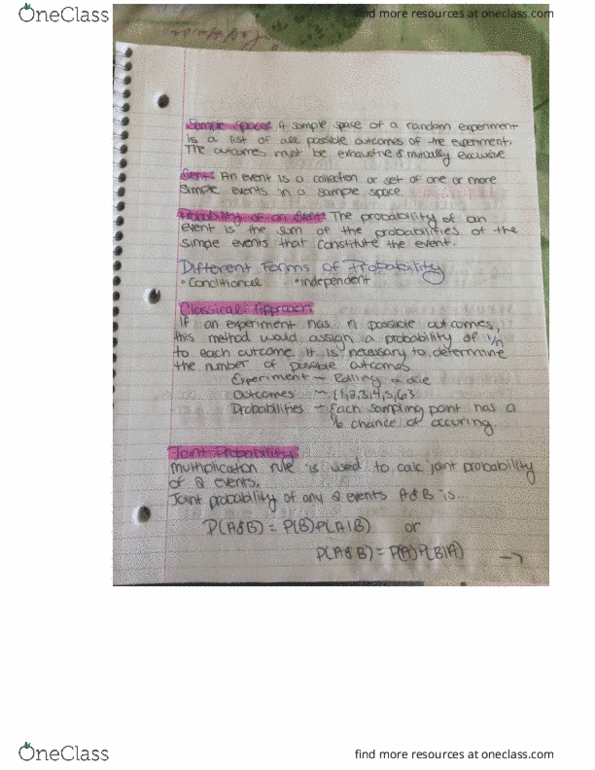 OneClass
find more resources at oneclass.com
Sample Space: A sample space of a random experiment
is a list of all possible outcomes of the experiment.
The outcomes must be exhaustive & mutually exclusive
Event: An event is a collection or set of one or more
simple events in a sample space.
Probability of an Event: The probability of an
event is the sum of the probabilities of the
simple events that constitute the event.
Different Forms of Probability
• Conditional • independent
Classical Approach
If an experiment has n possible outcomes,
this method would assign a probability of 1/n
to each outcome. It is necessary to determine
the number of possible outcomes
Experiment ~ Rolling a die
Outcomes ~ {1,2,3,4,5,6}
Probabilities ~ Each sampling point has a
1/6 chance of occuring.
Joint Probability
Multiplication rule is used to calc joint probability
of 2 events.
Joint probability of any 2 events A & B is...
P(A&B) = P(B)P(A|B) or
P(A&B) = P(A)P(B|A) →
OneClass
find more resources at oneclass.com